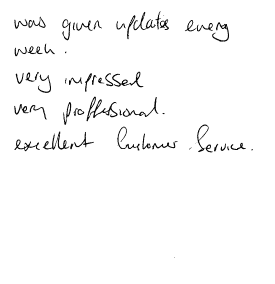 was given updates every
week.
very impressed
very proffesional.
excellent Customer Service.